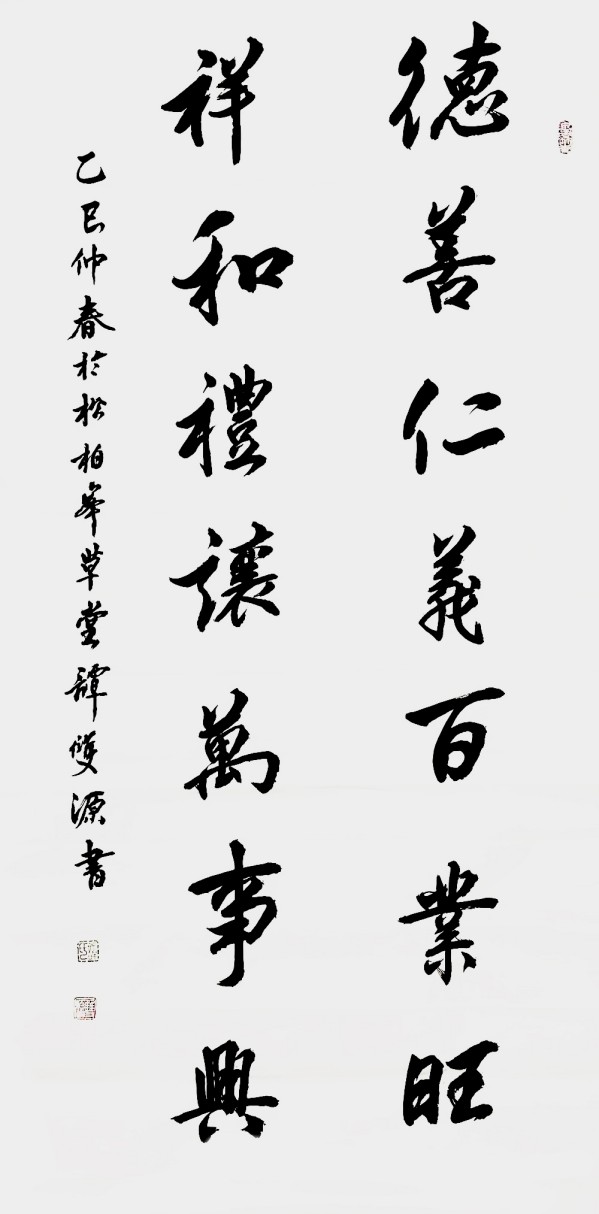 德善仁義百業旺
祥和禮讓萬事興
乙巳仲春於松柏草堂譚雙源書